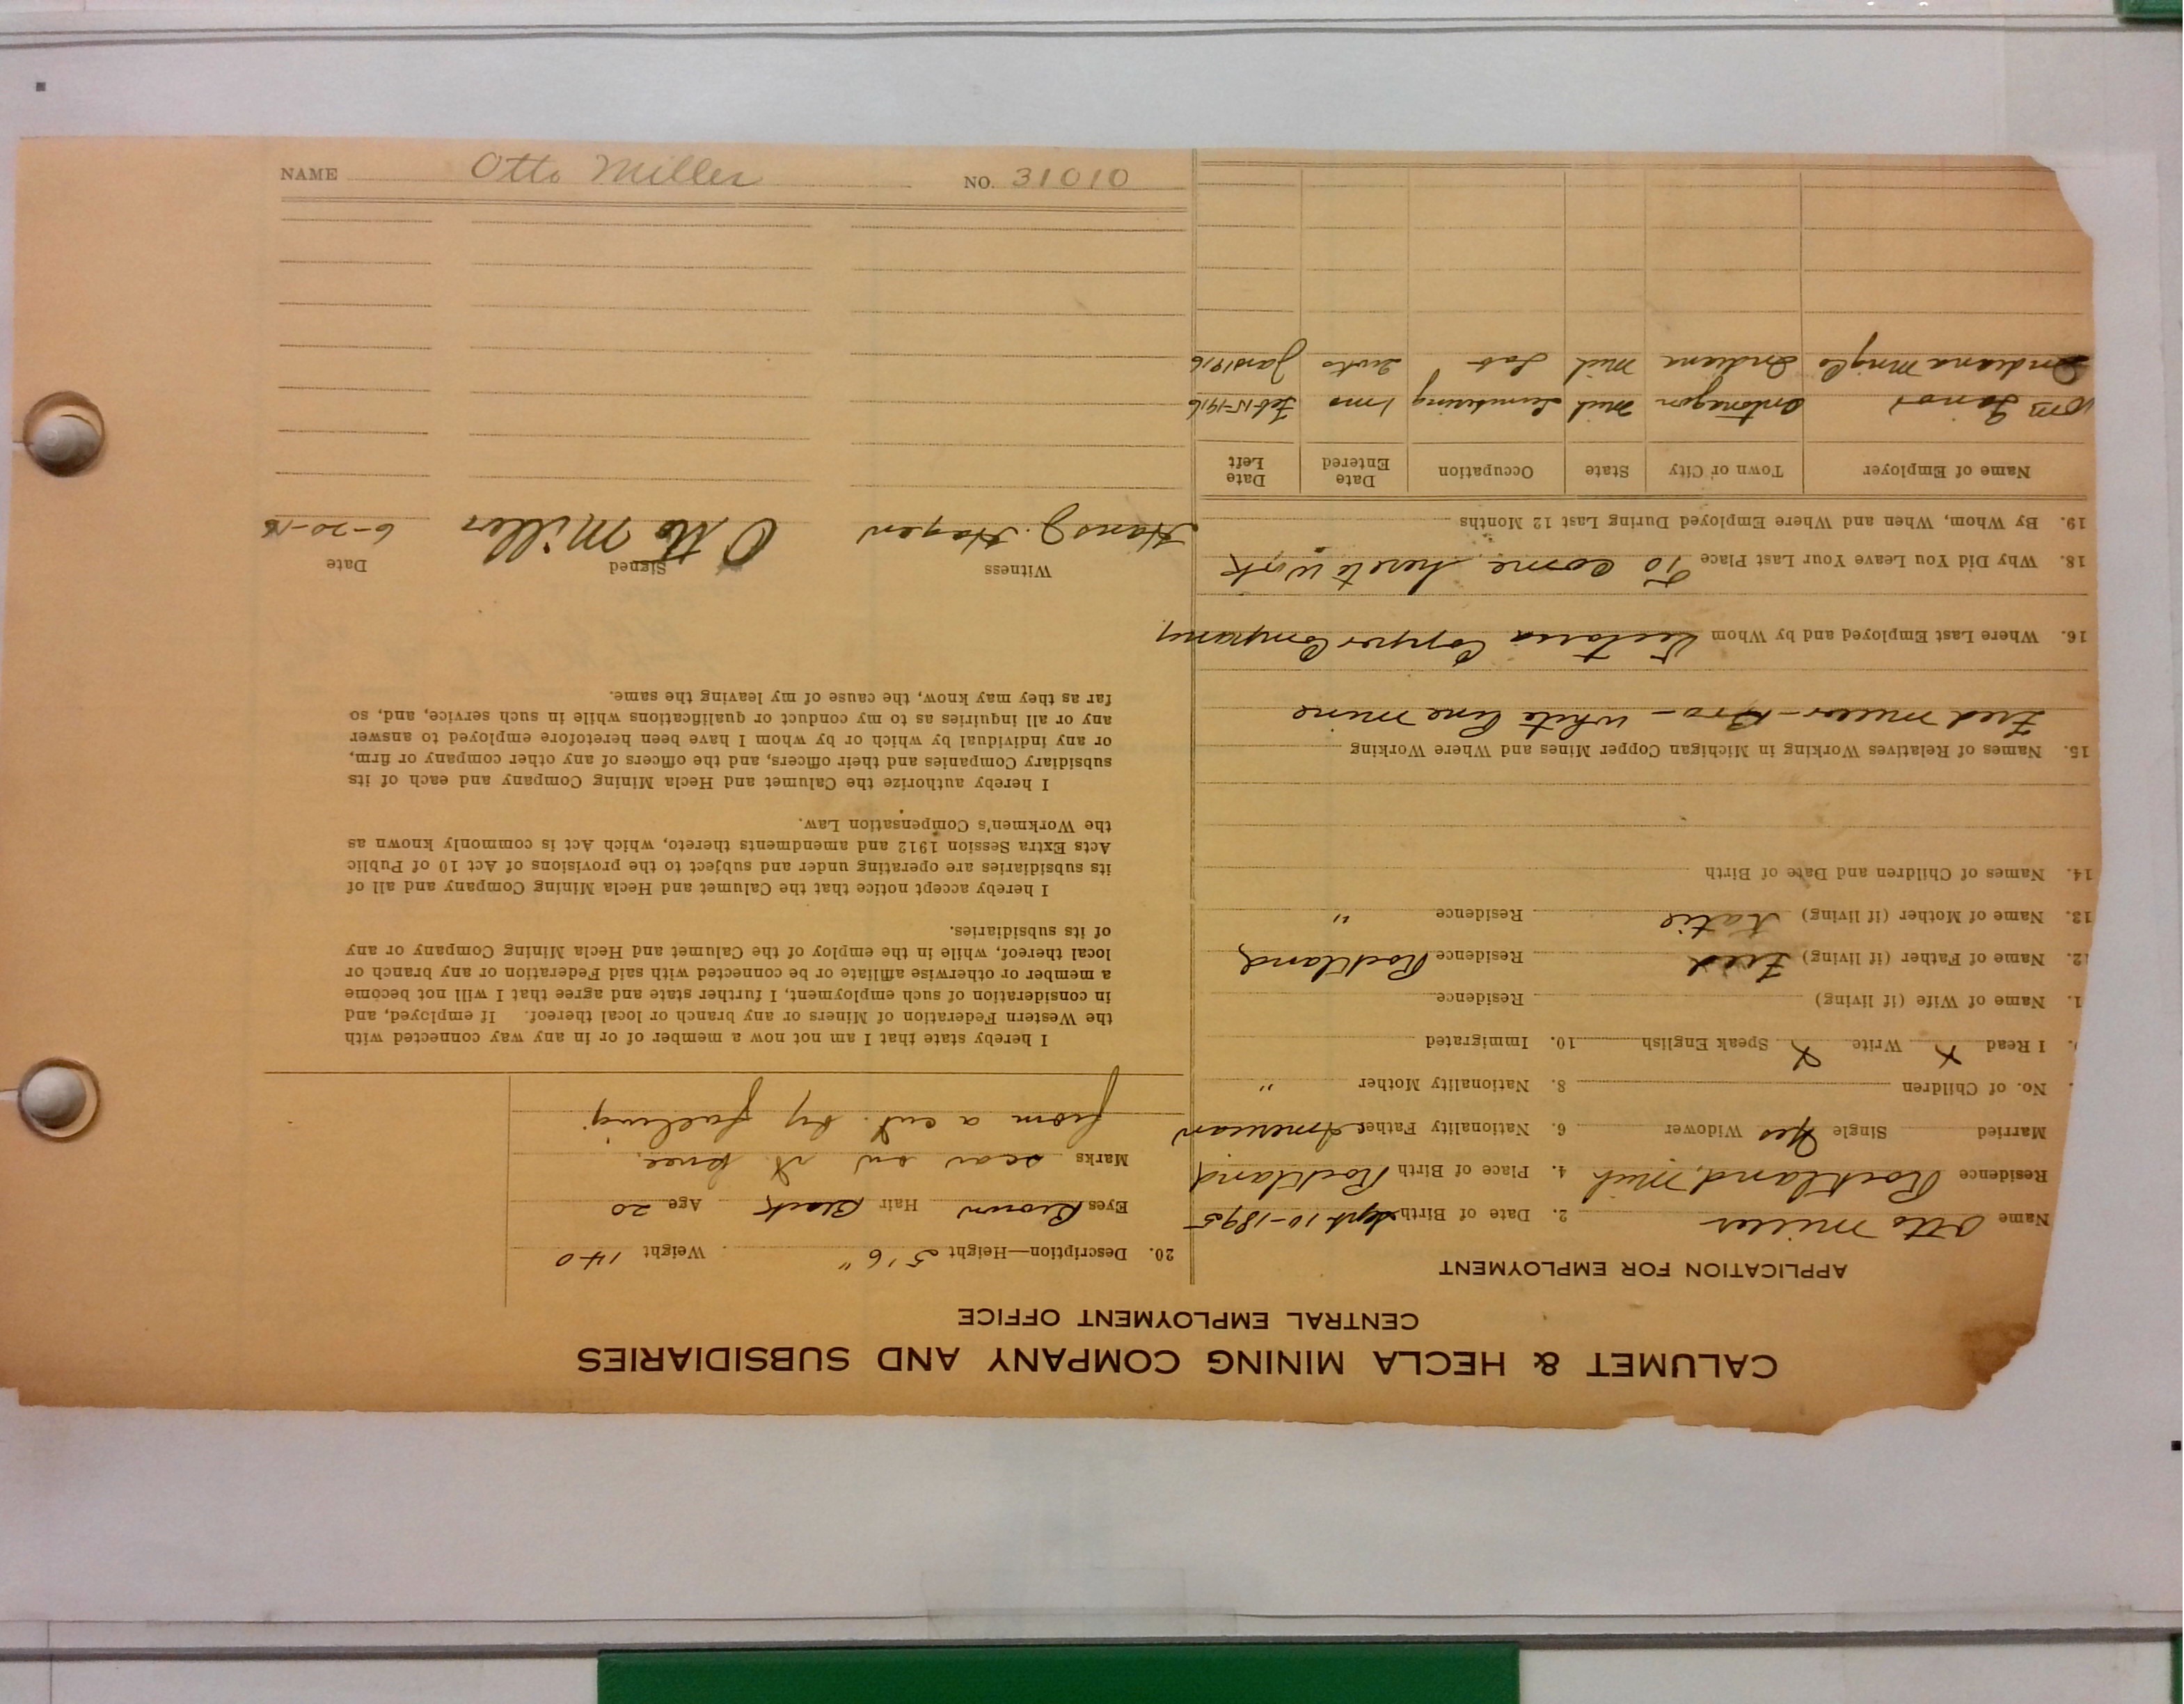 CALUMET & HECLA MINING COMPANY AND SUBSIDIARIES
CENTRAL EMPLOYMENT OFFICE
APPLICATION FOR EMPLOYMENT
Name Otto Miller 2. Date of Birth Sept 10-1895
Residence Rockland, Mich 4. Place of Birth Rockland
Married Single Yes Widower 6. Nationality Father American
No. of Children 8. Nationality Mother "
I Read X Write X Speak English 10. Immigrated
1. Name of Wife (if living) Residence
12. Name of Father (if living) Fred Residence Rockland
13. Name of Mother (if living) Katie Residence "
14. Names of Children and Date of Birth
15. Names of Relatives Working in Michigan Copper Mines and Where Working
Fred Miller - Bro - White Pine Mine
16. Where Last Employed and by Whom Victoria Copper Company
18. Why Did You Leave Your Last Place To come here to work
19. By Whom, When and Where Employed During Last 12 Months
Name of Employer Town or City State Occupation Date Entered Date Left
Wm Ontonagon Mich Lumbering 1 mo Feb 15-1916
Indiana Mng Co Indiana Mich Lab Jan 1916
20. Description—Height 5' 6" Weight 140
Eyes Brown Hair Black Age 20
Marks scar on rt knee
from a cut by falling.
I hereby state that I am not now a member of or in any way connected with
the Western Federation of Miners or any branch or local thereof. If employed, and
in consideration of such employment, I further state and agree that I will not become
a member or otherwise affiliate or be connected with said Federation or any branch or
local thereof, while in the employ of the Calumet and Hecla Mining Company or any
of its subsidiaries.
I hereby accept notice that the Calumet and Hecla Mining Company and all of
its subsidiaries are operating under and subject to the provisions of Act 10 of Public
Acts Extra Session 1912 and amendments thereto, which Act is commonly known as
the Workmen's Compensation Law.
I hereby authorize the Calumet and Hecla Mining Company and each of its
subsidiary Companies and their officers, and the officers of any other company or firm,
or any individual by which or by whom I have been heretofore employed to answer
any or all inquiries as to my conduct or qualifications while in such service, and, so
far as they may know, the cause of my leaving the same.
Witness Signed Date
Hans J. Hagen Otto Miller 6-20-16
NAME Otto Miller NO. 31010